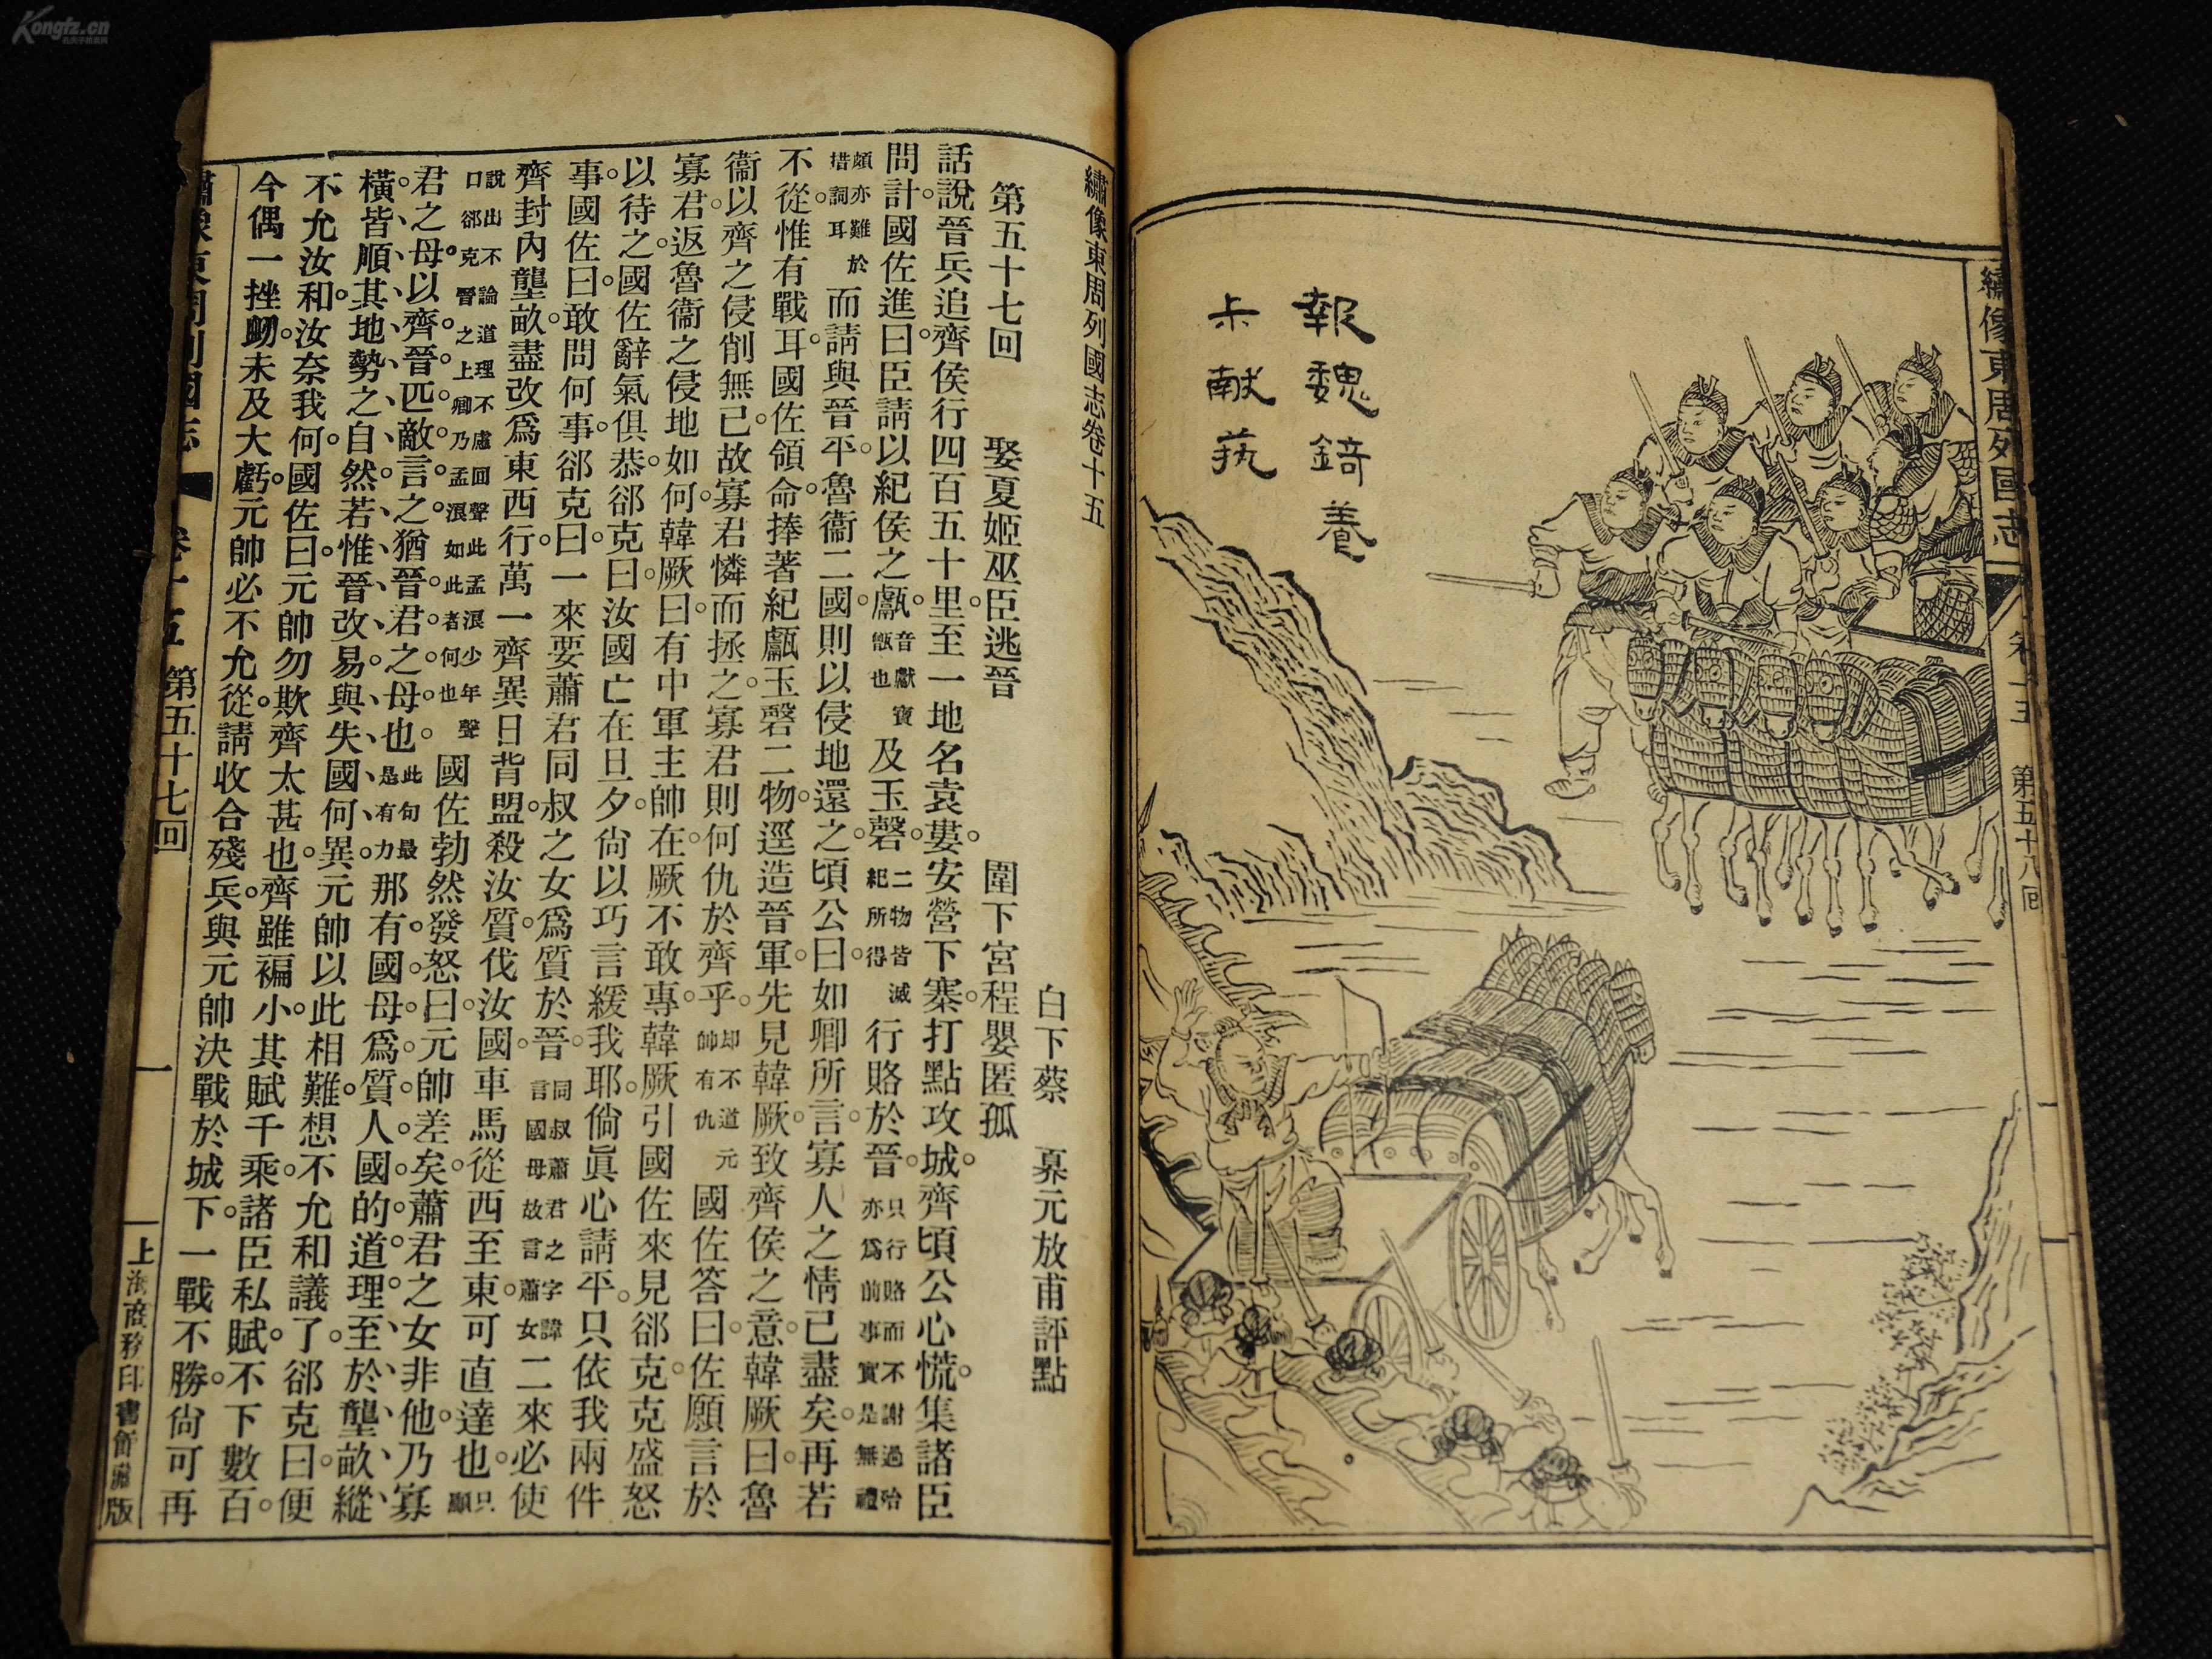 Kongfz.cn
繡像東周列國志
卷十五
第五十八回
報魏錡養
叔献藝
繡像東周列國志卷十五
白下蔡　奡元放甫評點
第五十七回　娶夏姬巫臣逃晉　圍下宮程嬰匿孤
話說晉兵追齊侯行四百五十里至一地名袁婁安營下寨打點攻城齊頃公心慌集諸臣
問計國佐進曰臣請以紀侯之甗音獻寶甑也及玉磬二物皆滅紀所得行賂於晉只行賂而不謝過殆亦爲前事實是無禮
頗亦難於措詞耳而請與晉平魯衞二國則以侵地還之頃公曰如卿所言寡人之情已盡矣再若
不從惟有戰耳國佐領命捧著紀甗玉磬二物逕造晉軍先見韓厥致齊侯之意韓厥曰魯
衞以齊之侵削無已故寡君憐而拯之寡君則何仇於齊乎却不道元帥有仇國佐答曰佐願言於
寡君返魯衞之侵地如何韓厥曰有中軍主帥在厥不敢專韓厥引國佐來見郤克克盛怒
以待之國佐辭氣俱恭郤克曰汝國亡在旦夕尙以巧言緩我耶倘眞心請平只依我兩件
事國佐曰敢問何事郤克曰一來要蕭君同叔之女爲質於晉同叔蕭君之字諱言國母故言蕭女二來必使
齊封內壟畝盡改爲東西行萬一齊異日背盟殺汝質伐汝國車馬從西至東可直達也只顧
說出不論道理不慮回聲此孟浪少年聲口郤克晉之上卿乃孟浪如此者何也國佐勃然發怒曰元帥差矣蕭君之女非他乃寡
君之母以齊晉匹敵言之猶晉君之母也此句最是有力那有國母爲質人國的道理至於壟畝縱
橫皆順其地勢之自然若惟晉改易與失國何異元帥以此相難想不允和議了郤克曰便
不允汝和汝奈我何國佐曰元帥勿欺齊太甚也齊雖褊小其賦千乘諸臣私賦不下數百
今偶一挫衂未及大虧元帥必不允從請收合殘兵與元帥決戰於城下一戰不勝尙可再
繡像東周列國志　卷十五　第五十七回　一　上海商務印書館藏版